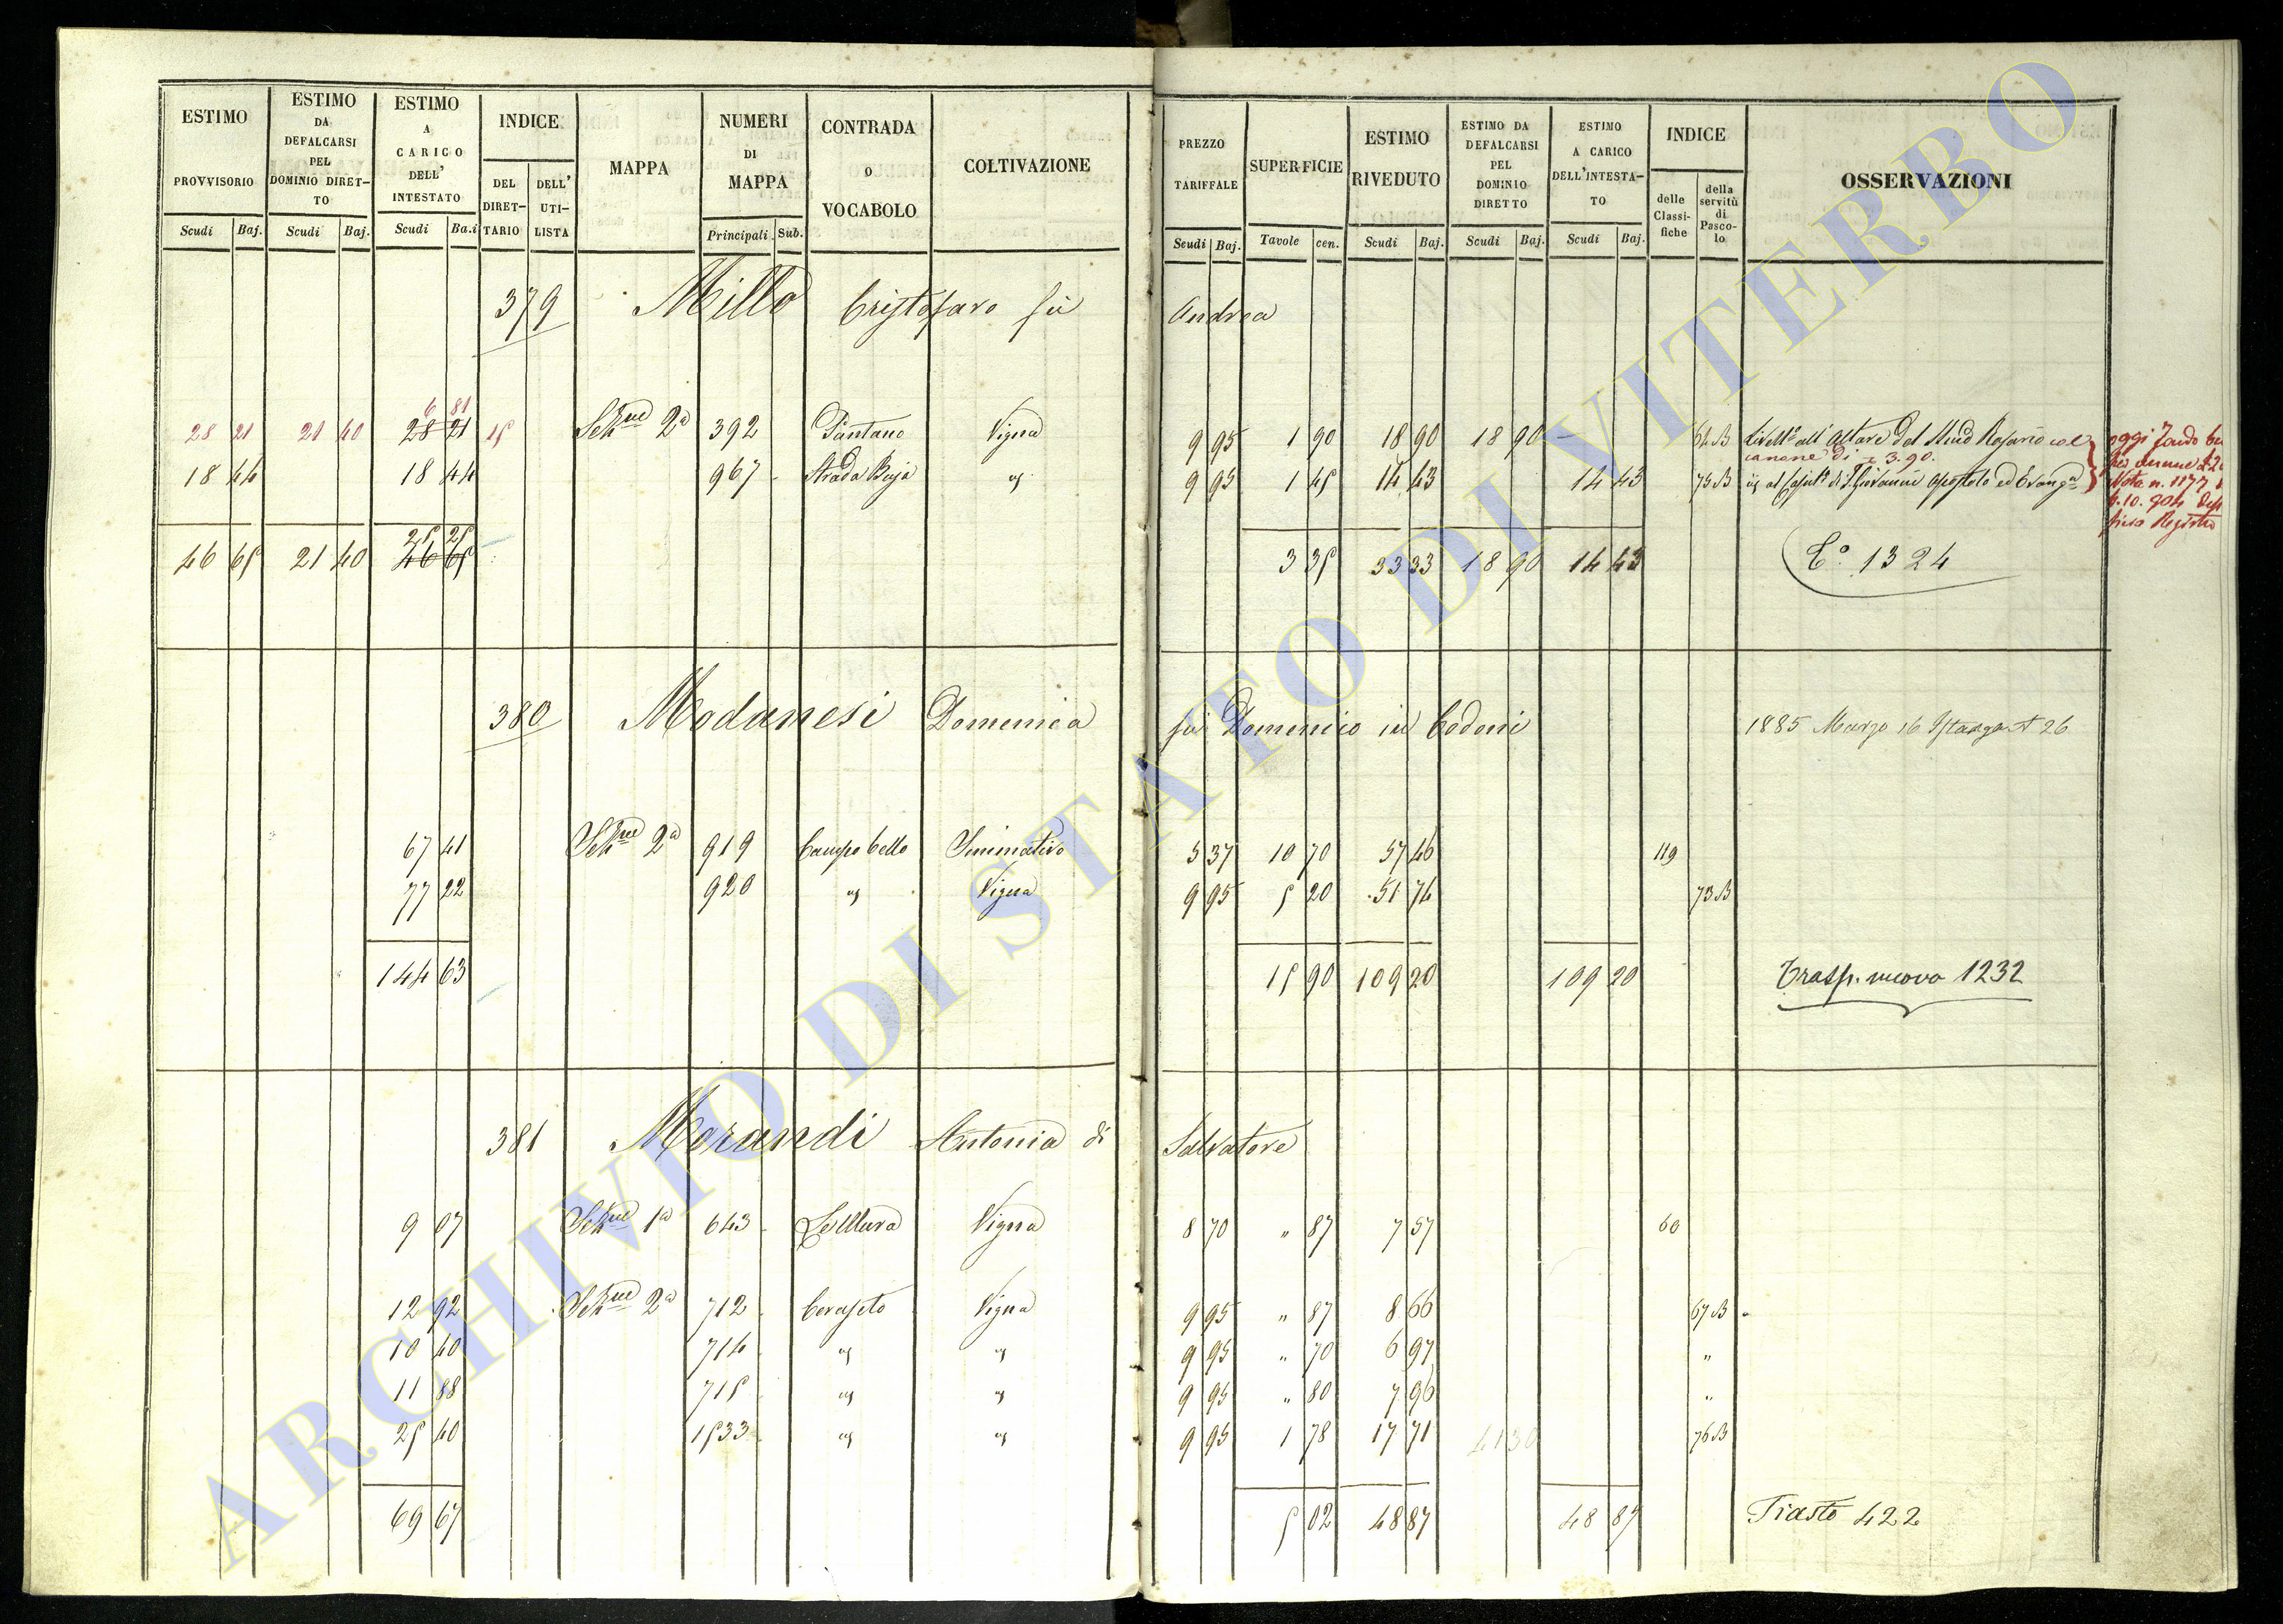 ESTIMO PROVVISORIO Scudi Baj.
ESTIMO DA DEFALCARSI PEL DOMINIO DIRET-TO Scudi Baj.
ESTIMO A CARICO DELL' INTESTATO Scudi Ba.i
INDICE DEL DIRET-TARIO DELL' UTI-LISTA
MAPPA
NUMERI DI MAPPA Principali Sub.
CONTRADA O VOCABOLO
COLTIVAZIONE
PREZZO TARIFFALE Scudi Baj.
SUPERFICIE Tavole cen.
ESTIMO RIVEDUTO Scudi Baj.
ESTIMO DA DEFALCARSI PEL DOMINIO DIRETTO Scudi Baj.
ESTIMO A CARICO DELL'INTESTA-TO Scudi Baj.
INDICE delle Classi-fiche della servitù di Pasco-lo
OSSERVAZIONI
379 Millo Cristofaro fù Andrea
6 81
28 21 21 40 28 21 15 Sez.ne 2a 392 Pantano Vigna 9 95 1 90 18 90 18 90 64 B Livello all' Altare del SSmo Rosario col
canone di 3.90.
18 44 18 44 967 Strada Bugia 9 95 1 45 14 43 14 43 73 B di S. Giovanni Apostolo ed Evang.a
oggi
Nota n. 1177
Registro
25 25
46 65 21 40 46 65 3 35 33 33 18 90 14 43 C.o 1324
380 Modanesi Domenica fù Domenico in Codoni 1885 Marzo 16 26
67 41 Sez.ne 2a 919 Campo bello Seminativo 5 37 10 70 57 46 119
77 22 920 " Vigna 9 95 5 20 51 74 73 B
144 63 15 90 109 20 109 20 Trasp. nuovo 1232
381 Morandi Antonia di Salvatore
9 07 Sez.ne 1a 643 Vigna 8 70 " 87 7 57 60
12 92 Sez.ne 2a 712 Ceraseto Vigna 9 95 " 87 8 66 67 B
10 40 714 " " 9 95 " 70 6 97 "
11 88 715 " " 9 95 " 80 7 96 "
25 40 1533 " " 9 95 1 78 17 71 41 30 76 B
69 67 5 02 48 87 48 87 422
ARCHIVIO DI STATO DI VITERBO